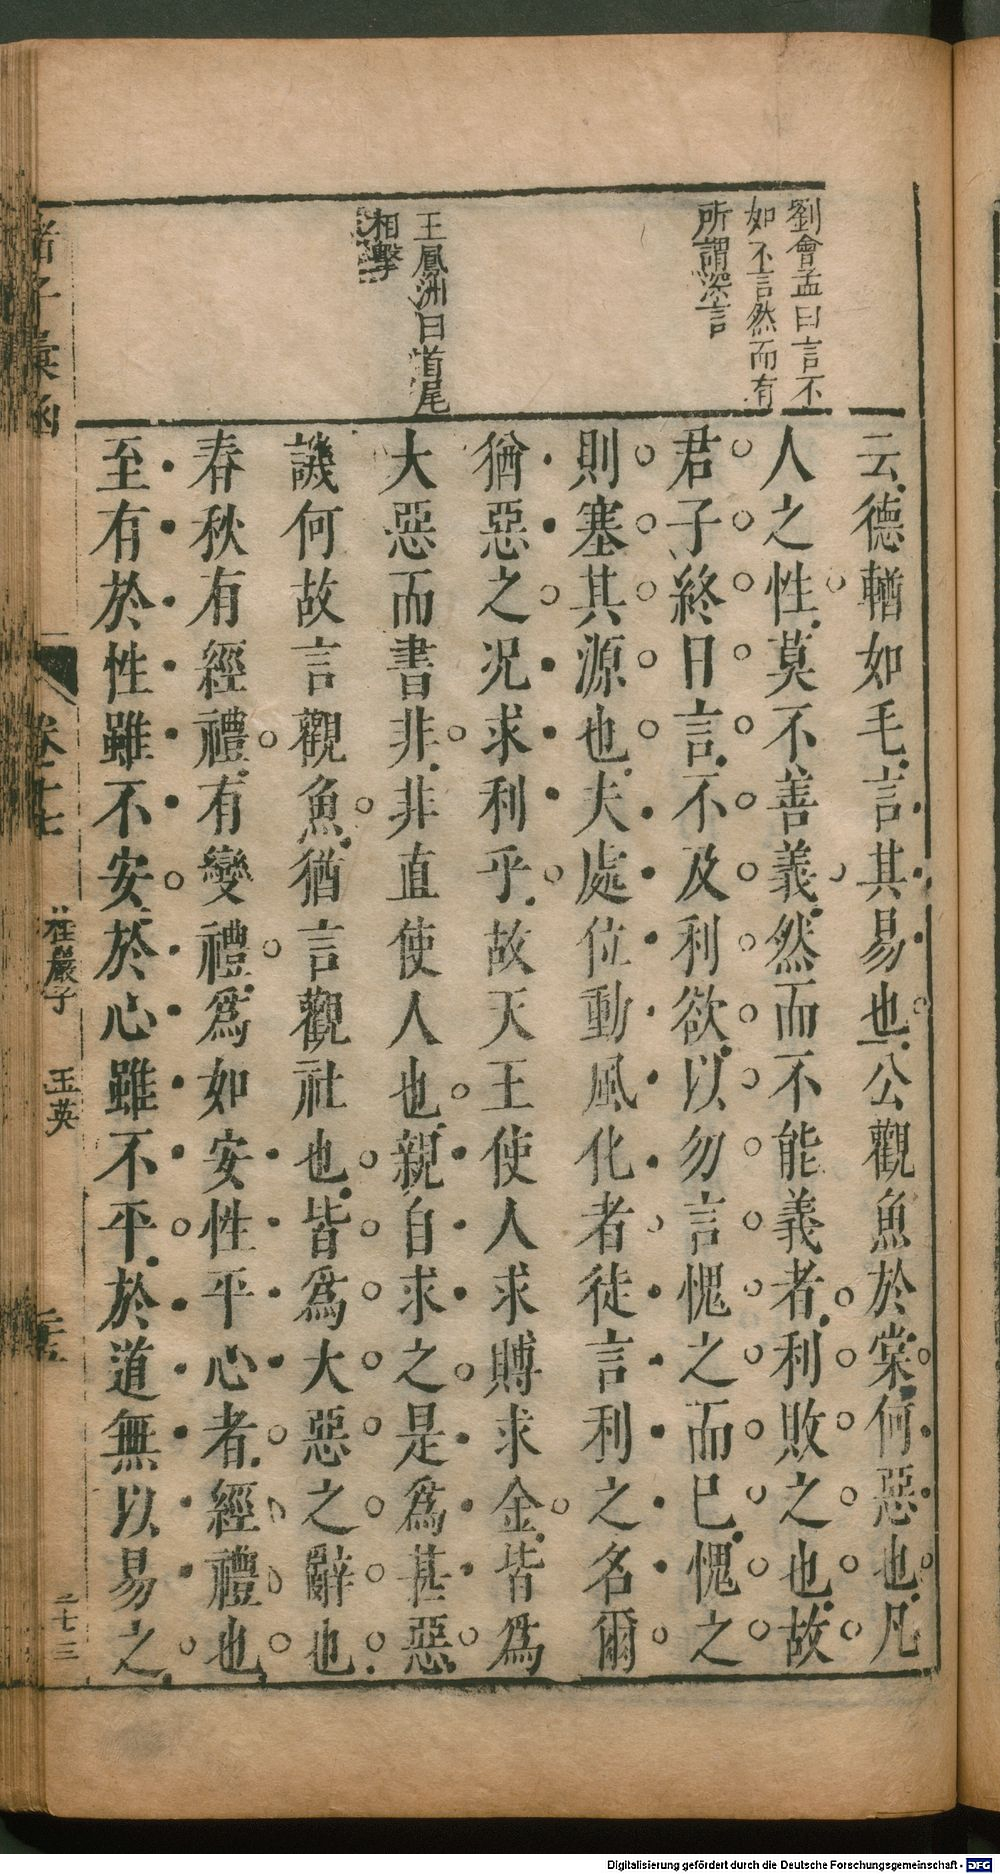 劉會孟曰言不
如不言然而有
所謂深言
王鳳洲曰首尾
相擊
云德輶如毛言其易也公觀魚於棠何惡也凡
人之性莫不善義然而不能義者利敗之也故
君子終日言不及利欲以勿言愧之而已愧之
則塞其源也夫處位動風化者徒言利之名爾
猶惡之况求利乎故天王使人求賻求金皆爲
大惡而書非非直使人也親自求之是爲甚惡
譏何故言觀魚猶言觀社也皆爲大惡之辭也
春秋有經禮有變禮爲如安性平心者經禮也
至有於性雖不安於心雖不平於道無以易之
諸子彙函
卷十七
桂巖子
王英
二十五
二七三
Digitalisierung gefördert durch die Deutsche Forschungsgemeinschaft - DFG